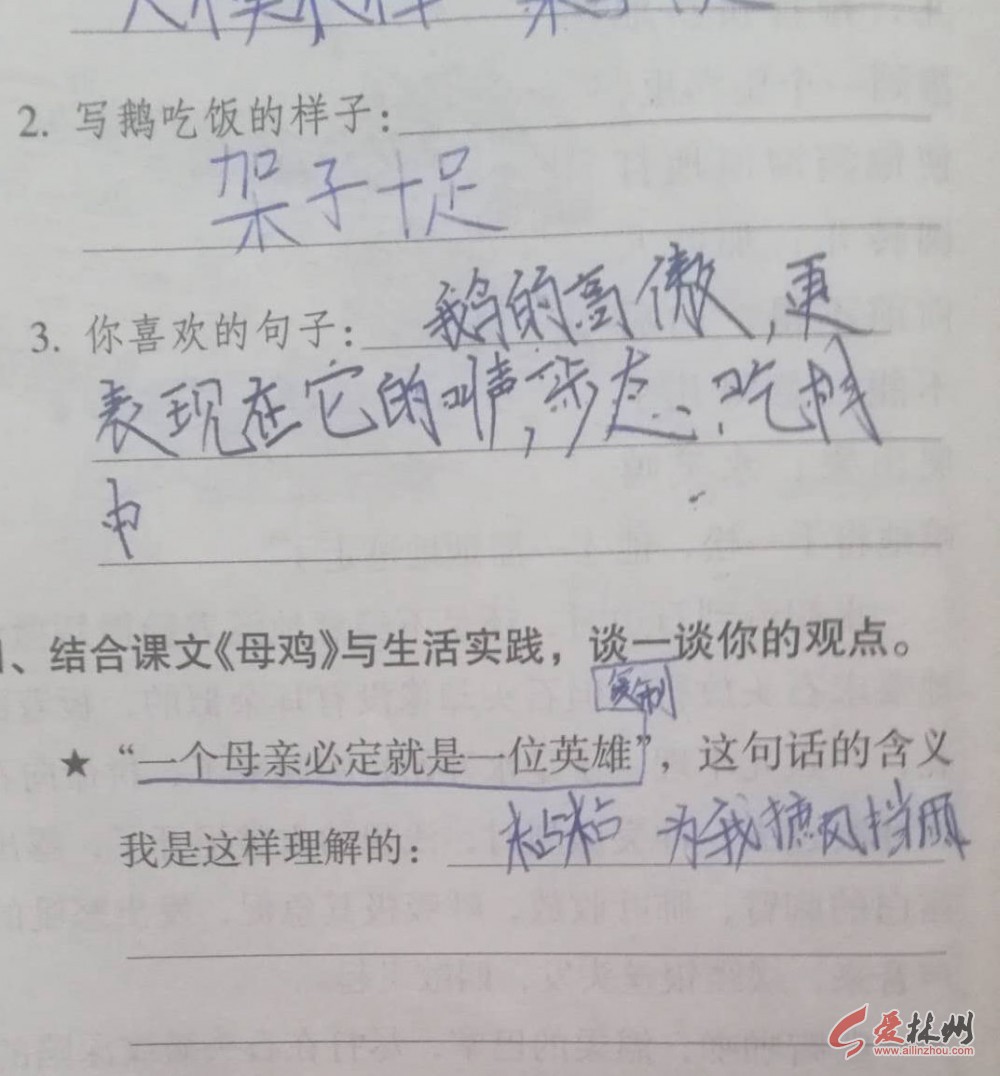 2. 写鹅吃饭的样子：
架子十足
3. 你喜欢的句子： 鹅的高傲，更
表现在它的叫声，步态，吃相
中
、结合课文《母鸡》与生活实践，谈一谈你的观点。
复制
★ “一个母亲必定就是一位英雄”，这句话的含义
我是这样理解的： 粘粘 为我遮风挡雨
爱林州
www.ailinzhou.com